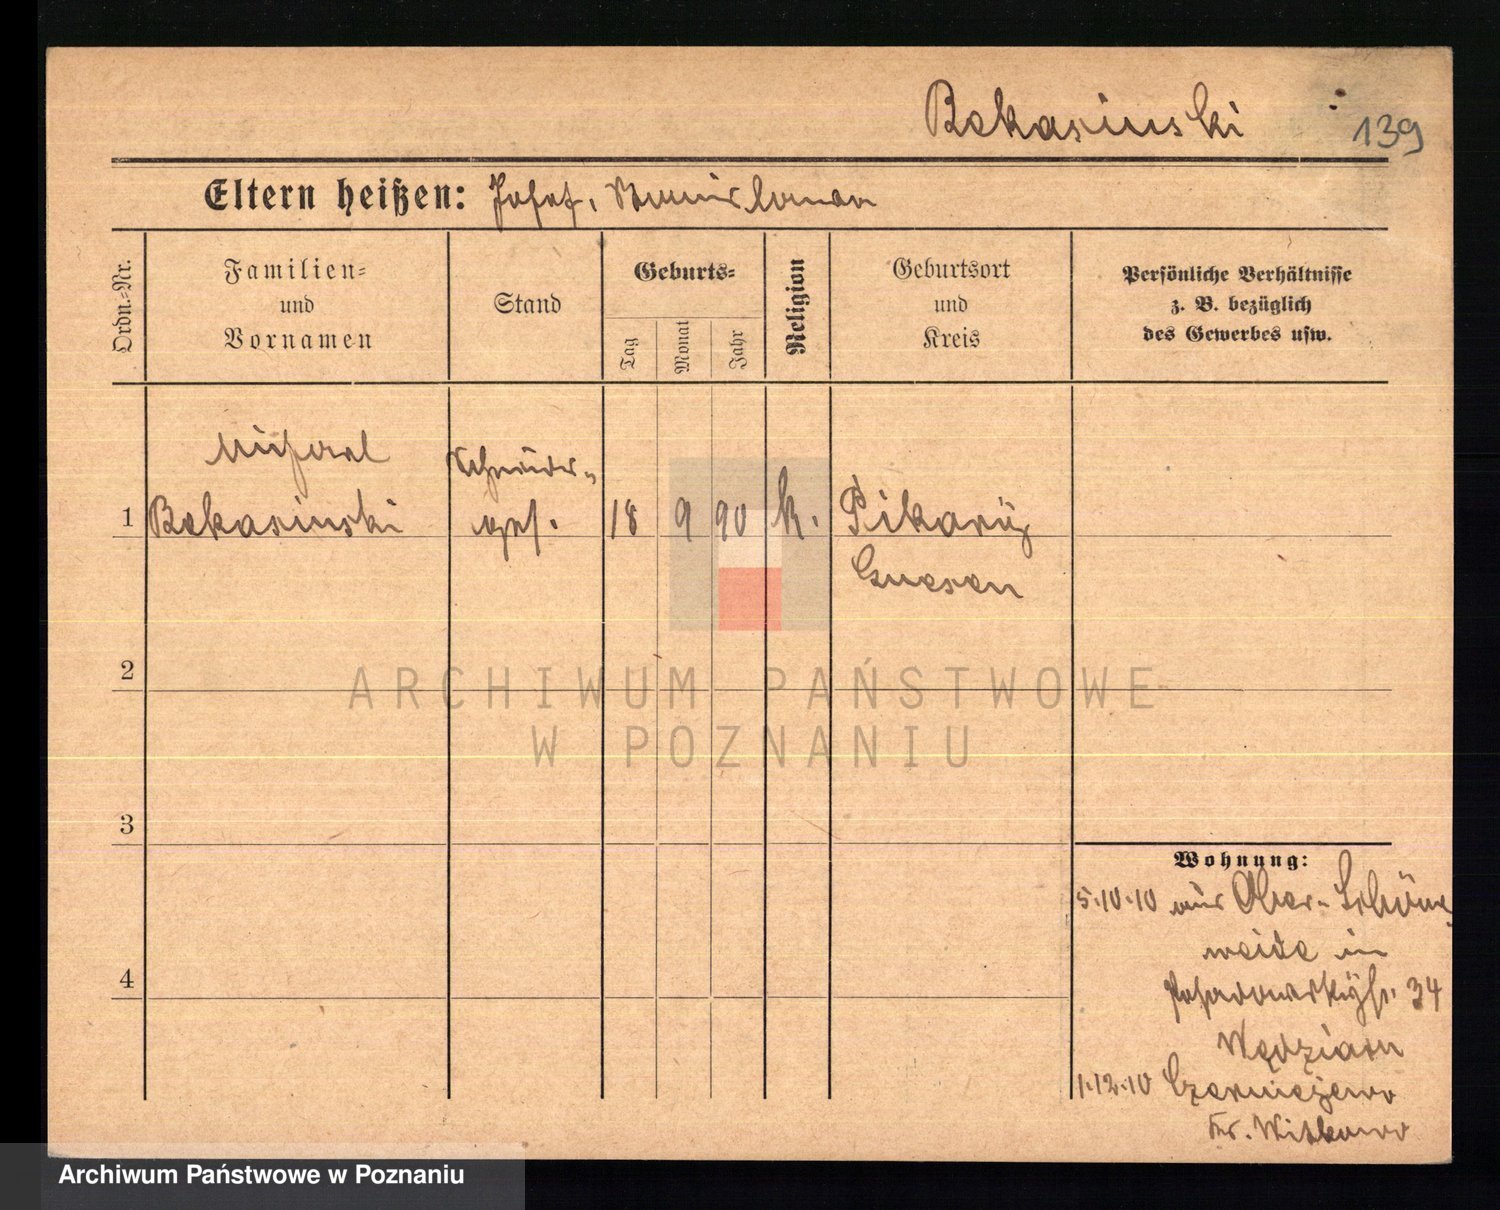 Bekasinski
139
Eltern heißen: Josef,
Ordn.-Nr.
Familien-
und
Vornamen
Stand
Geburts-
Tag
Monat
Jahr
Religion
Geburtsort
und
Kreis
Persönliche Verhältnisse
z. B. bezüglich
des Gewerbes usw.
Michael
Schneider-
1 Bekasinski ges. 18 9 90 k.
Gnesen
2
ARCHIWUM PAŃSTWOWE
W POZNANIU
3
Wohnung:
5.10.10 aus Ober-Schöne
weide in
34
4
1.12.10 Czerniejewo
Kr. Witkowo
Archiwum Państwowe w Poznaniu